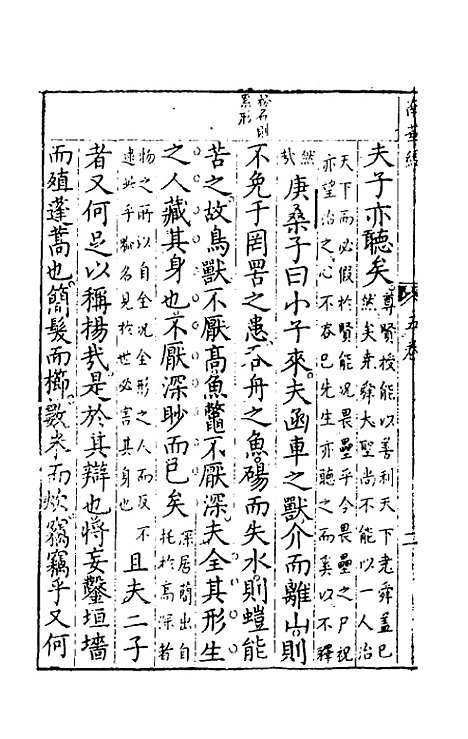 南華經
五卷
二
夫子亦聽矣
尊賢授能以善利天下堯舜盖已
然矣堯舜大聖尚不能以一人治
天下而必假於賢能况畏壘乎今畏壘之尸祝
亦望治之心不吝已先生亦聽之而奚以不釋
然哉
庚桑子曰小子來夫函車之獸介而離山則
不免于罔罟之患吞舟之魚碭而失水則螘能
則
累形
苦之故鳥獸不厭高魚鼈不厭深夫全其形生
之人藏其身也不厭深眇而已矣
深居簡出自
托於高深者
物之所以自全况全形之人而反不
逮此乎名見於世必害其身也
且夫二子
者又何足以稱揚哉是於其辯也將妄鑿垣墻
而殖蓬蒿也簡髮而櫛數米而炊竊竊乎又何